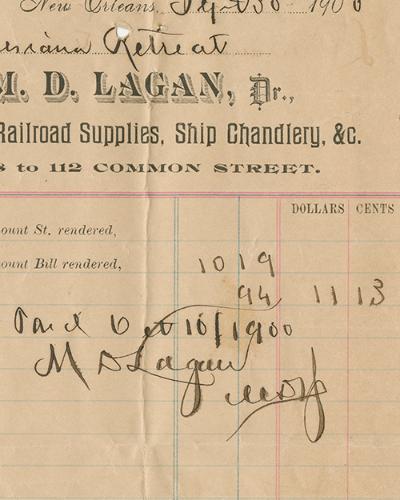 New Orleans, Sept 30 1900
isiana Retreat
M. D. LAGAN, Dr.,
Railroad Supplies, Ship Chandlery, &c.
to 112 COMMON STREET.
DOLLARS CENTS
ount St. rendered,
ount Bill rendered, 10 19
94 11 13
Paid Oct 10/1900
M D Lagan